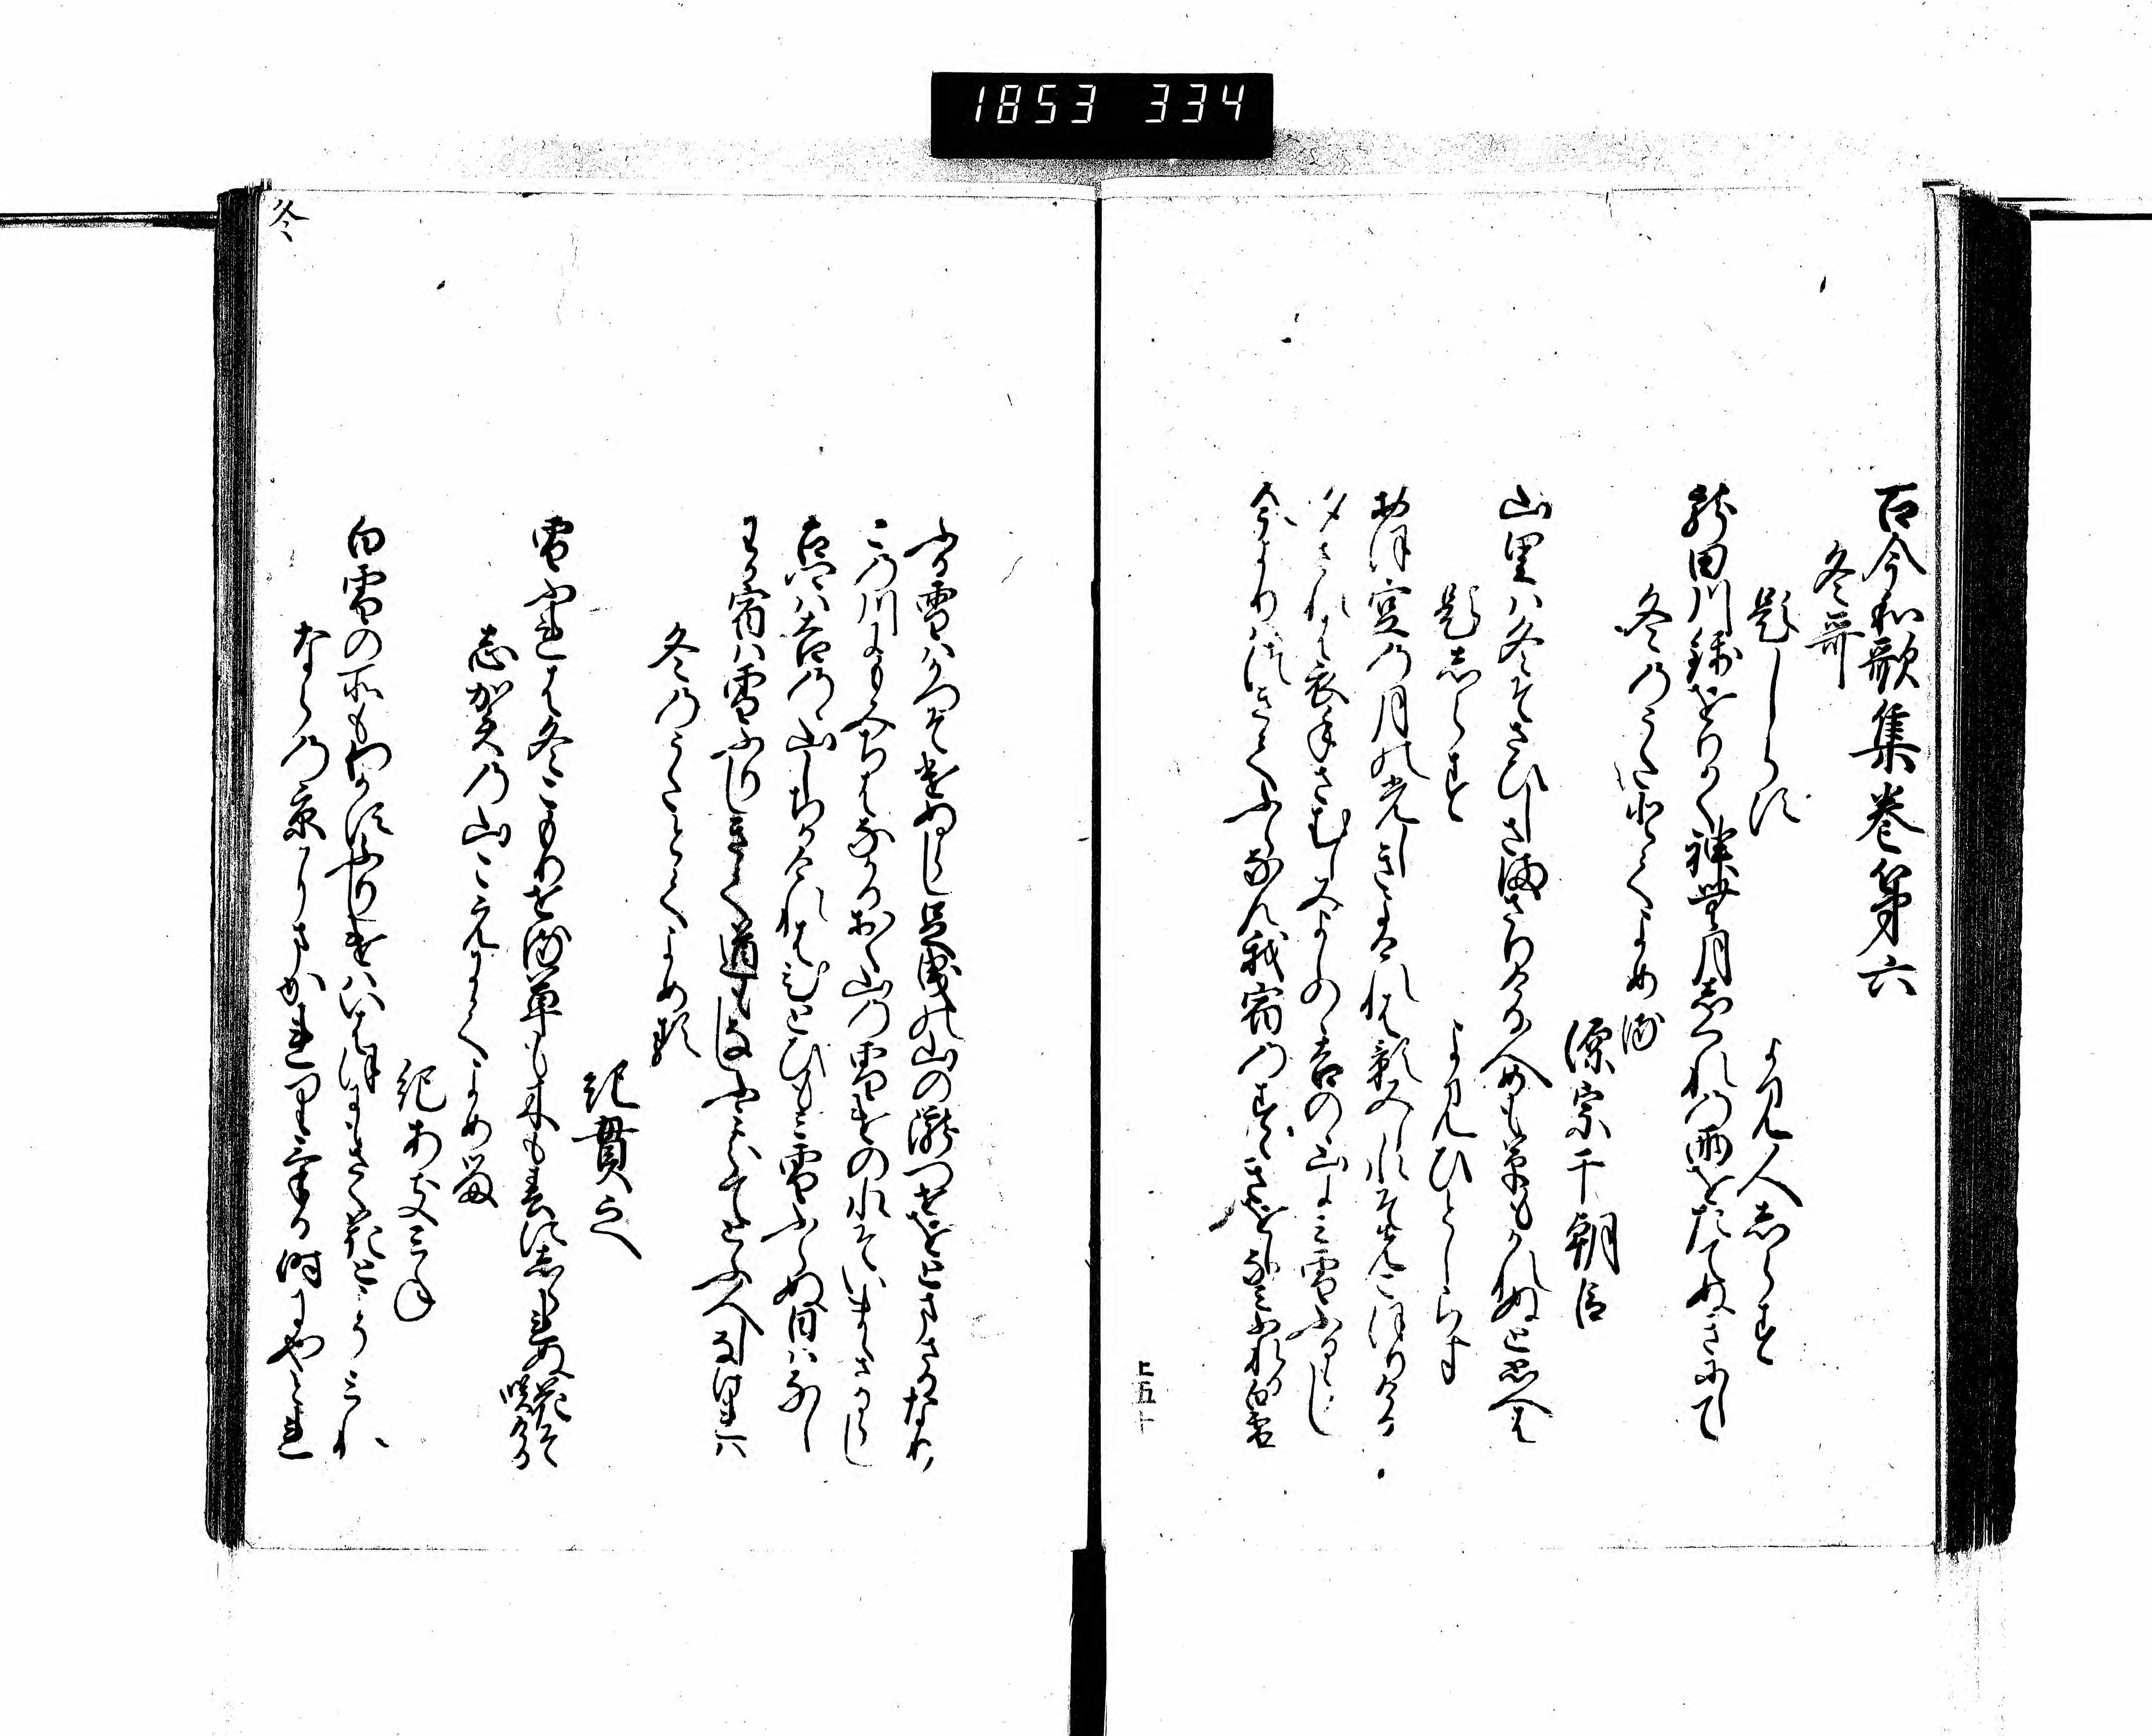 1853 334
古今和歌集巻第六
冬哥
題しらす
よみ人しらす
龍田川錦をりかく神無月しくれの雨をたてぬきにして
冬のうたとてよめる
源宗于朝臣
山里は冬そさひしさまさりける人めも草もかれぬと思へは
題しらす
よみひとしらす
おほ空の月の光しきよけれは影みし水そまつこほりける
夕されは衣手さむしみよしのゝ吉のゝ山にみ雪ふるらし
今よりはつきてふらなん我宿のすゝきをしなみふれる白雪
上五十
冬
ふる雪はかつそけぬらし足曳の山の瀧つせをとまさるなり
この川にもみちはなかるおく山の雪けの水そいままさるらし
古里は吉のゝ山しちかけれはひとひもみ雪ふらぬ日はなし
わか宿は雪ふりしきて道もなしふみわけてとふ人しなけれは
冬のうたとてよめる
紀貫之
雪ふれは冬こもりせる草も木も春にしられぬ花そ咲ける
志賀の山こえにてよめる
紀あきみね
白雪の所もわかすふりしけはいはほにもさく花とこそみれ
ならの京にまかれりける時にやとれ